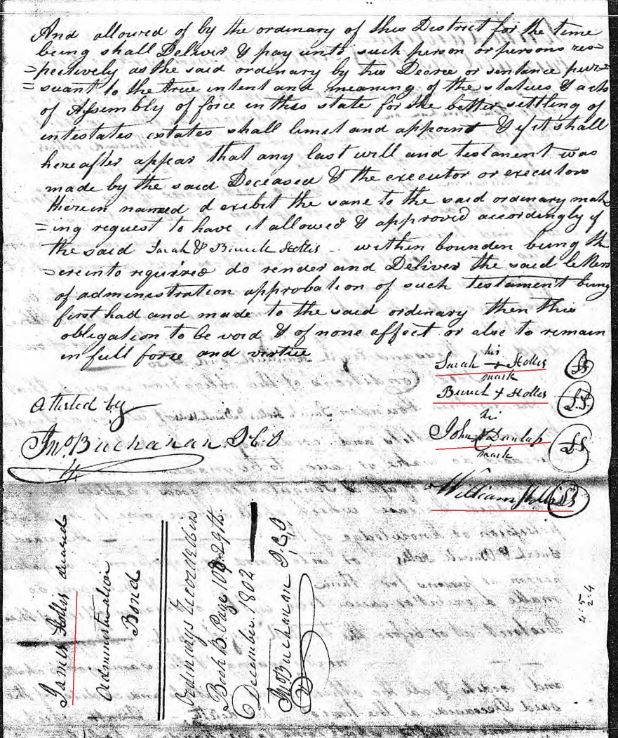 And allowed of by the ordinary of this District for the time
being shall Deliver & pay unto such person or persons res=
=pectively as the said ordinary by his Decree or sintance pur=
=suant to the true intent and meaning of the statues & acts
of Assembly of force in this state for the better settling of
intestates estates shall limit and appoint & if it shall
hereafter appear that any last will and testament was
made by the said Deceased & the executor or executors
therein named d exibit the same to the said ordinary mak
=ing request to have it allowed & approvid accordingly if
the said Sarah & Burrel Hollis within bounden being th
=ereinto required do render and Deliver the said letters
of administration approbation of such testament being
first had and made to the said ordinary then this
obligation to be void & of none effect or else to remain
in full force and virtue
Sarah + Hollis LS
his
mark
Burrel + Hollis LS
Attested by
his
John Dunlap LS
mark
Jno. Buchanan O.C.D
William LS
James Hollis deceased
Administration
Bond
Ordinarys
Book B. Page 108 29th
December 1802
Jno Buchanan O.C.D
4-5
2-4